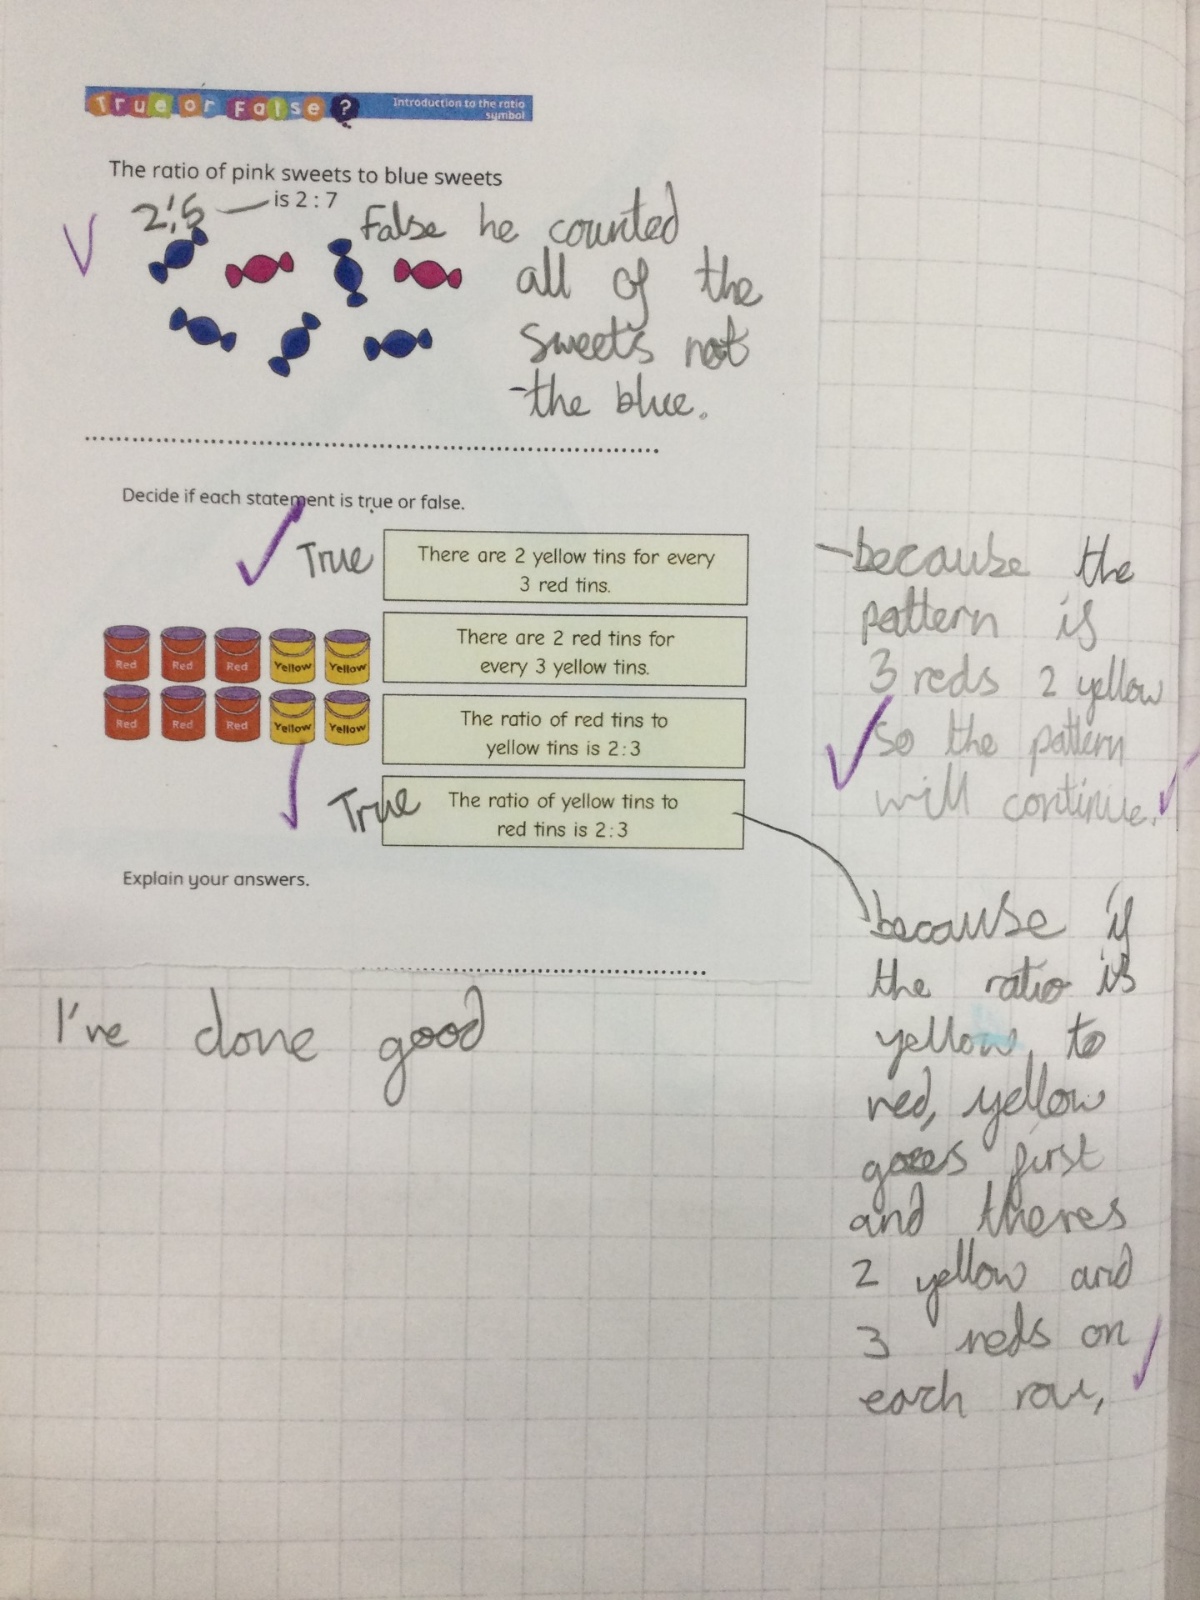 True or False?
Introduction to the ratio
symbol
The ratio of pink sweets to blue sweets
is 2 : 7
2:5
False he counted
all of the
sweets not
the blue.
Decide if each statement is true or false.
True
There are 2 yellow tins for every
3 red tins.
There are 2 red tins for
every 3 yellow tins.
The ratio of red tins to
yellow tins is 2:3
True
The ratio of yellow tins to
red tins is 2:3
Red Red Red Yellow Yellow
Red Red Red Yellow Yellow
Explain your answers.
because the
pattern is
3 reds 2 yellow
so the pattern
will continue.
because if
the ratio is
yellow to
red, yellow
goes first
and theres
2 yellow and
3 reds on
each row,
I've done good